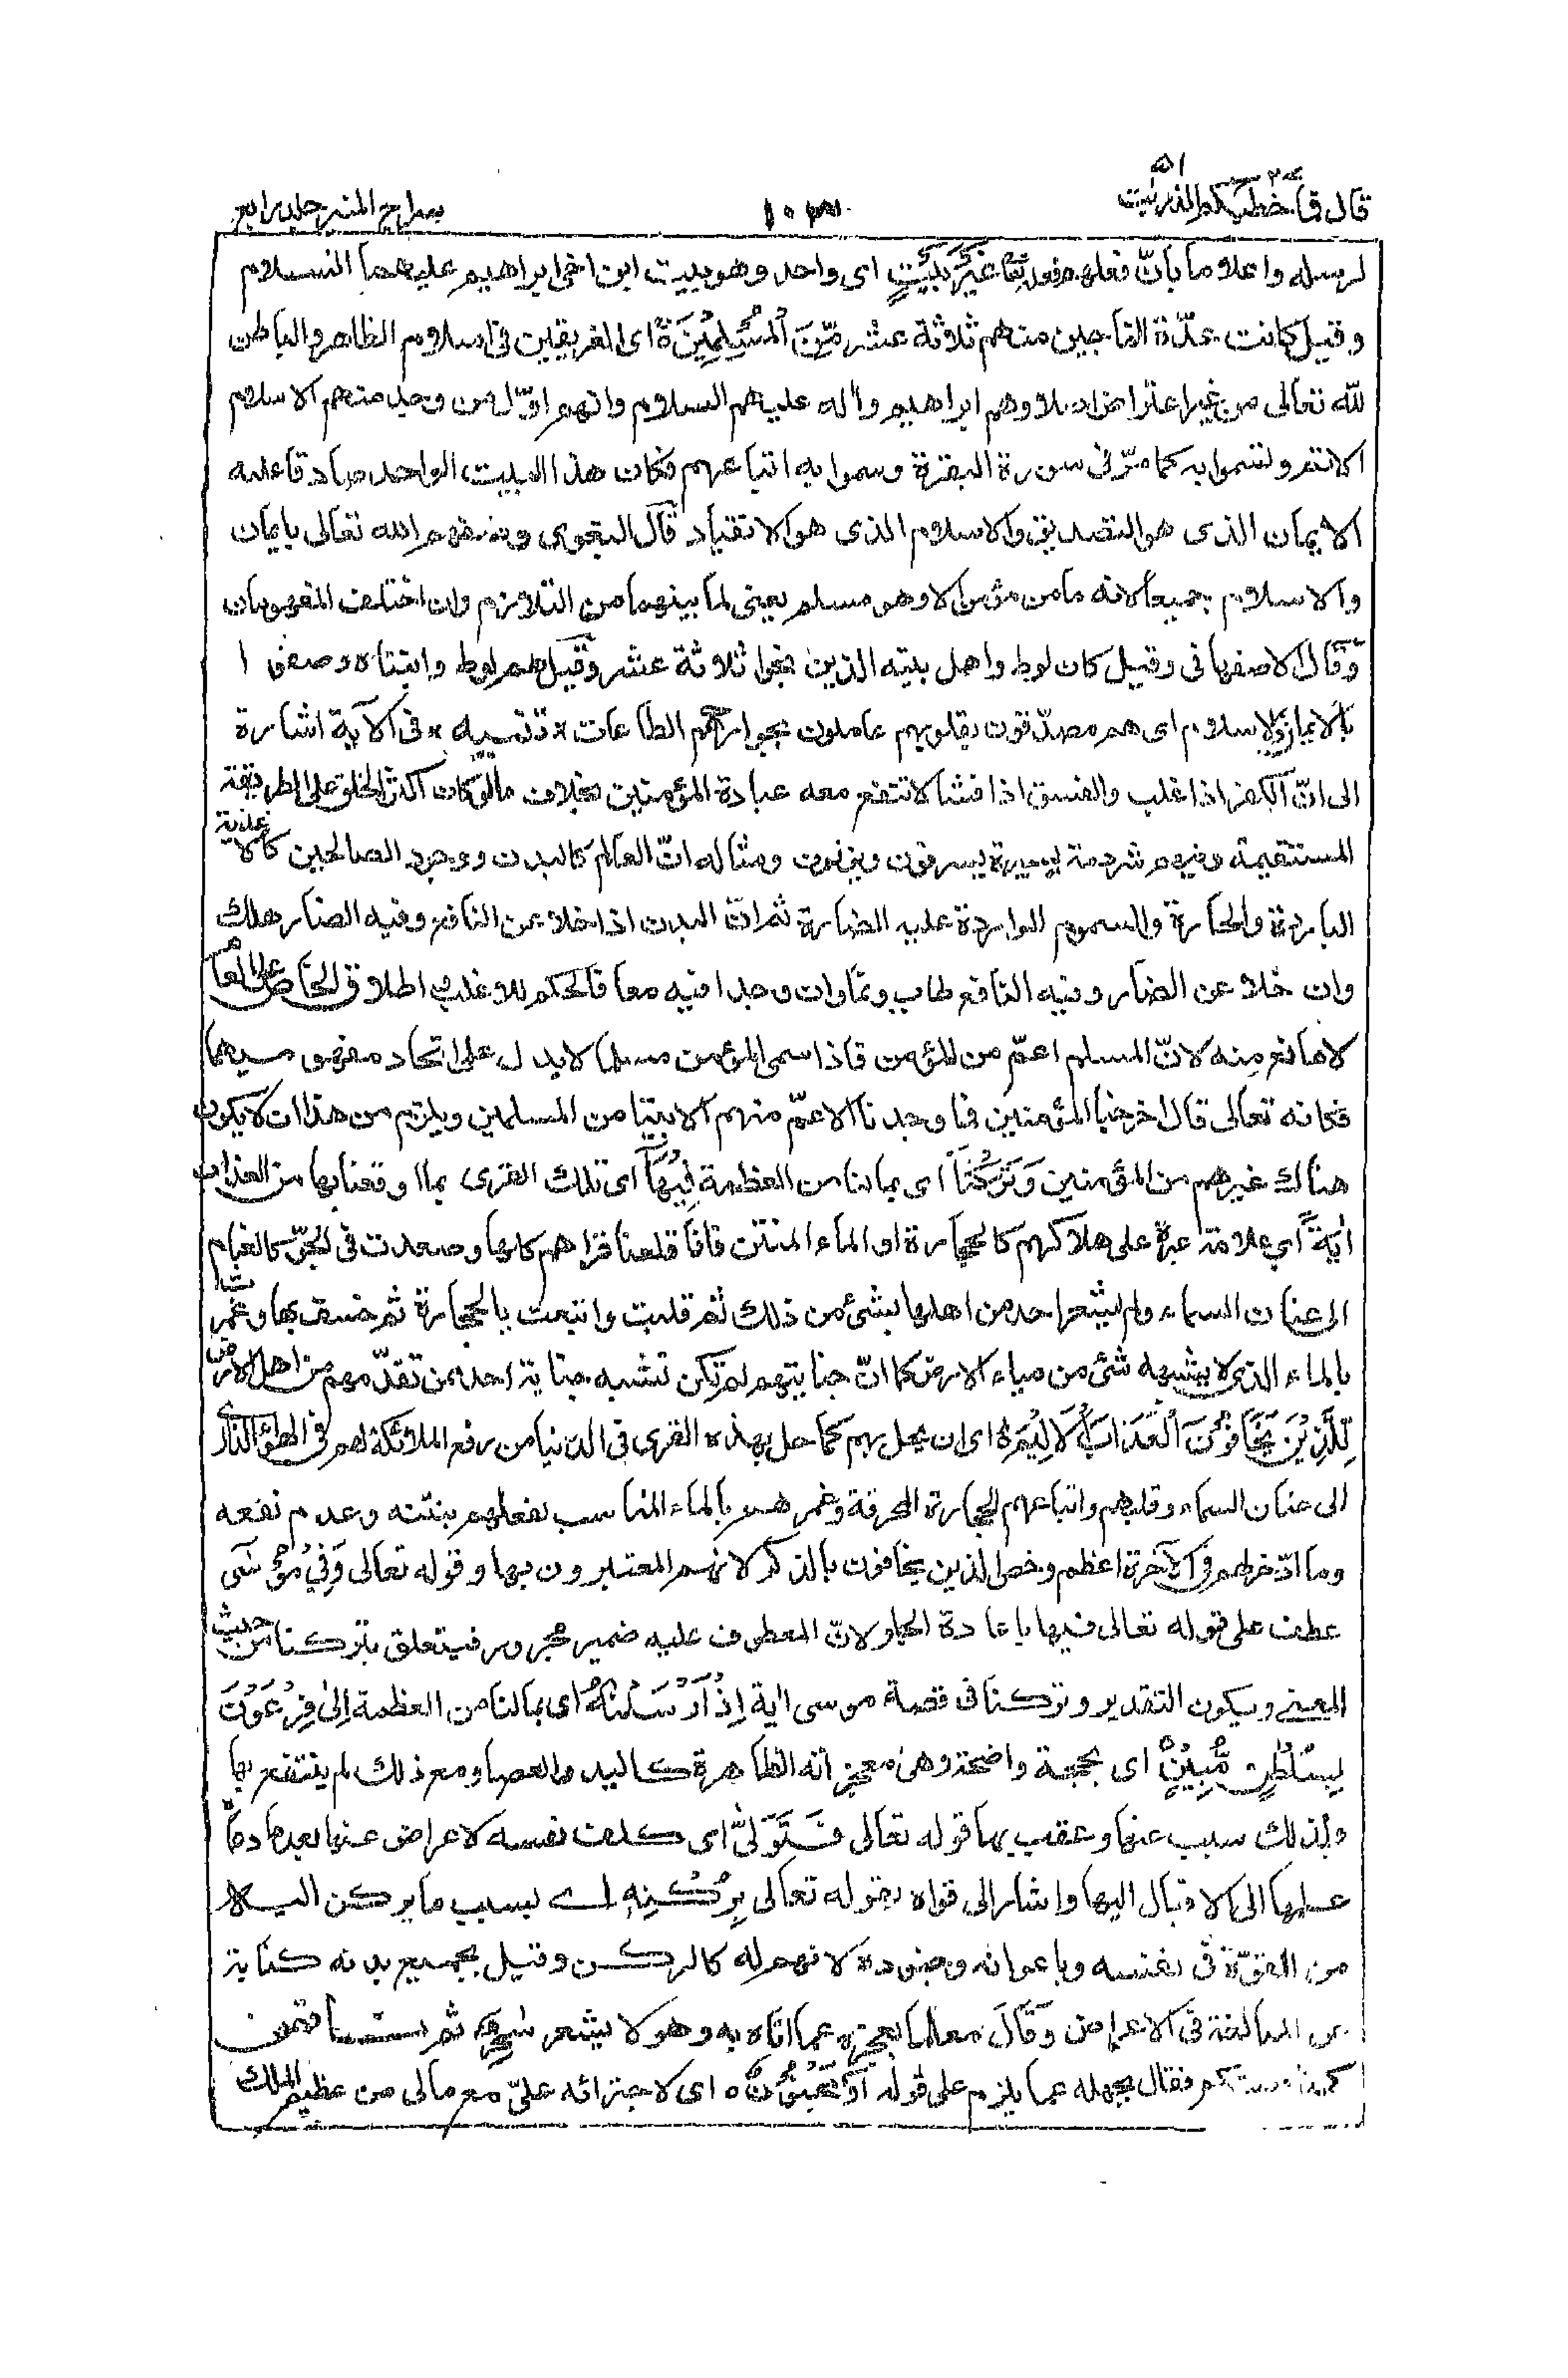 قال فما خطبكم ٢٧ الذاريت ٥١
١٠٣
سراج المنير جلد رابع
لرسله واعلاما بأنّ فعلهم هو فعله تعالى غَيْرَ بَيْتٍ اى واحد وهو بيت ابن اخى ابراهيم عليهما السلام
وقيل كانت عدّة الناجين منهم ثلاثة عشر مِّنَ الْمُسْلِمِيْنَ ۚ اى الغريقين فى اسلام الظاهر والباطن
لله تعالى من غير اعتراض اصلا وهم ابراهيم واٰله عليهم السلام وانهم اوّل من وجد منهم الاسلام
الاتم وتسموا به كما مرّ فى سورة البقرة وسموا به اتباعهم فكان هذا البيت الواحد صادقا عليه
الايمان الذى هو التصديق والاسلام الذى هو الانقياد قال البغوى وصفهم الله تعالى بايمان
والاسلام جميعا لانه ما من مؤمن الا وهو مسلم يعنى لما بينهما من التلازم وان اختلف المفهومان
وقال الاصفهانى وقيل كان لوط واهل بيته الذين نجوا ثلاثة عشر وقيل هم لوط وابنتاه وصفوا
بالايمان والاسلام اى هم مصدّقون بقلوبهم عاملون بجوارحهم الطاعات * تنبيه * فى الآية اشارة
الى انّ الكفر اذا غلب والفسق اذا فشا لا تنفع معه عبادة المؤمنين بخلاف ما لو كان اكثر الخلق على الطريقة
المستقيمة وفيهم شرذمة يسيرة يسرقون ويزنون ومثاله انّ العالم كالبدن ووجود الصالحين كالاغذية
الباردة والحارة والسموم الواردة عليه الضارة ثم انّ البدن اذا خلا عن النافع وفيه الضار هلك
وان خلا عن الضار وفيه النافع طاب ونما وان وجدا فيه معا فالحكم للاغلب اطلاق الخاص على العام
لا مانع منه لانّ المسلم اعمّ من المؤمن فاذا سمى المؤمن مسلما لا يدل على اتحاد مفهوميهما
فكانه تعالى قال اخرجنا المؤمنين فما وجدنا الاعمّ منهم الا بيتا من المسلمين ويلزم من هذا ان لا يكون
هناك غيرهم من المؤمنين وَتَرَكْنَآ اى بما لنا من العظمة فِيْهَآ اى تلك القرى بما اوقعنا بها من العذاب
اٰيَةً اى علامة عبرة على هلاكهم كالحجارة او الماء المنتن فانا قلعنا قراهم كلها وصعدت فى الجوّ كالغمام
الى عنان السماء ولم يشعر احد من اهلها بشئ من ذلك ثم قلبت واتبعت بالحجارة ثم خسف بها وغمرت
بالماء الذى لا يشبهه شئ من مياه الارض كما انّ جنايتهم لم تكن تشبه جناية احد ممن تقدّمهم من اهل الارض
لِّلَّذِيْنَ يَخَافُوْنَ الْعَذَابَ الْاَلِيْمَ ۚ اى ان يحل بهم كما حل بهذه القرى فى الدنيا من رفع الملائكة لهم فى الهواء الذى
الى عنان السماء وقلبهم واتباعهم الحجارة المحرقة وغمرهم بالماء المناسب لفعلهم بنتنه وعدم نفعه
وما ادّخر لهم فى الآخرة اعظم وخص الذين يخافون بالذكر لانهم المعتبرون بها وقوله تعالى وَفِيْ مُوْسٰى
عطف على قوله تعالى فيها باعادة الجار لانّ المعطوف عليه ضمير مجرور فيتعلق بتركنا من حيث
المعنى ويكون التقدير وتركنا فى قصة موسى اٰية اِذْ اَرْسَلْنٰهُ اى بما لنا من العظمة اِلٰى فِرْعَوْنَ
بِسُلْطٰنٍ مُّبِيْنٍ اى بحجة واضحة وهى معجزاته الظاهرة كاليد والعصا ومع ذلك لم ينتفع بها
ولذلك سبب عنها وعقب بها قوله تعالى فَتَوَلّٰى اى كلف نفسه الاعراض عنها بعد ما دعا
عملها الى الاقبال اليها واشار الى قواه بقوله تعالى بِرُكْنِهٖ اے بسبب ما يركن اليه
من القوّة فى نفسه وباعوانه وجنوده لانهم له كالركن وقيل بجميع بدنه كناية
عن المبالغة فى الاعراض وَقَالَ معلما بعجزه عما اتاه به وهو لا يشعر سٰحِرٌ ثم
فقال بجهله عما يلزم على قوله اَوْ مَجْنُوْنٌ ه اى لاجترائه علىّ مع مالى من عظيم الملك